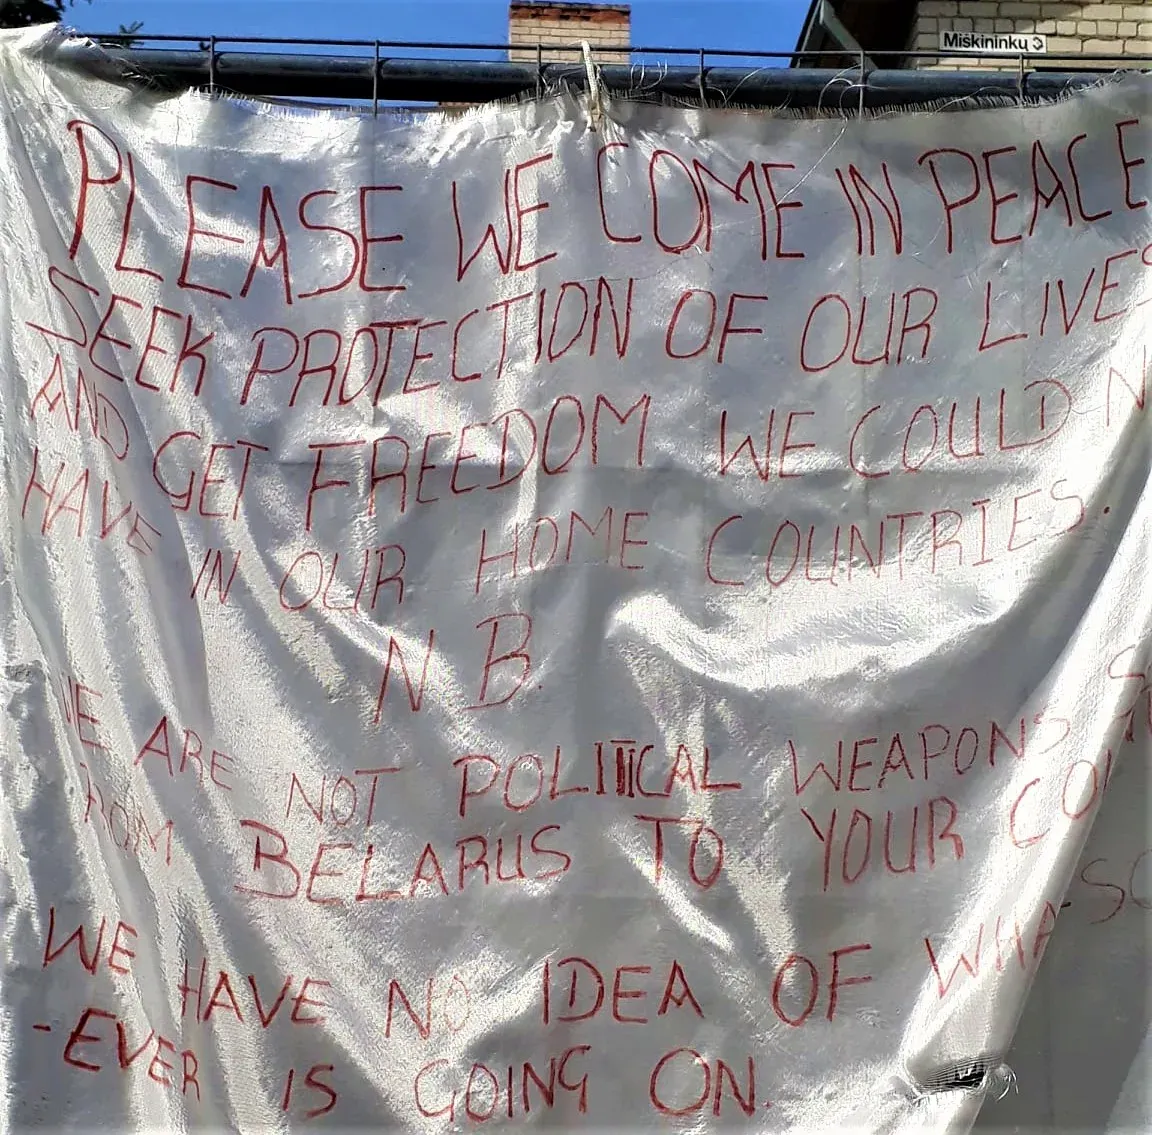 Miškininkų
PLEASE WE COME IN PEACE
SEEK PROTECTION OF OUR LIVES
AND GET FREEDOM WE COULD N
HAVE IN OUR HOME COUNTRIES.
N B.
WE ARE NOT POLITICAL WEAPONS
FROM BELARUS TO YOUR COU
WE HAVE NO IDEA OF WHA-SO
-EVER IS GOING ON.